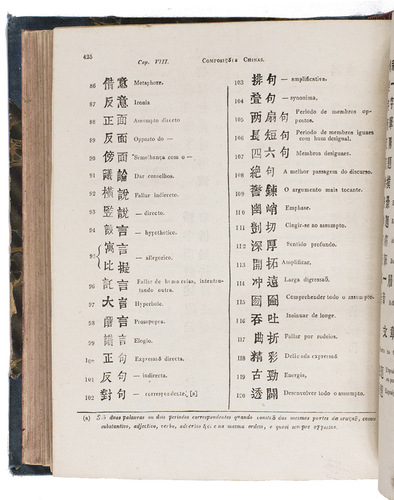 425
Cap. VIII.
Composições Chinas.
86 借意 Metaphore.
87 反意 Ironia
88 正面 Assumpto directo
89 反面 Opposto do —
90 傍面 Semelhança com o —
91 議論 Dar conselhos.
92 橫說 Fallar indirecto.
93 豎說 — directo.
94 設言 — hypothetico.
95 寓言 — allegorico.
比擬
96 託言 Fallar de huma cousa, intentando outra.
97 大言 Hyperbole.
98 言 Prosopopea.
99 言 Elogio.
100 正句 Expressaõ directa.
101 反句 — indirecta.
102 對句 — correspondente. [a]
103 排句 — amplificativa.
104 疊句 — synonima.
105 两扇句 Periodo de membros oppostos.
106 長短句 Periodo de membros iguaes com hum desigual.
107 四六句 Membros desiguaes.
108 絶句 A melhor passagem do discurso.
109 警鍊 O argumento mais tocante.
110 幽峭 Emphase.
111 剴切 Cingir-se ao assumpto.
112 深厚 Sentido profundo.
113 開拓 Amplificar,
114 冲遠 Larga digressaõ.
115 Comprehender todo o assumpto.
116 吞吐 Insinuar de longe.
117 曲折 Fallar por rodeios.
118 精彩 Delicada expressaõ
119 古勁 Energia,
120 透闢 Desenvolver todo o assumpto.
(a) Saõ duas palavras ou dois periodos correspondentes quando constaõ das mesmas partes da oraçaõ, como
substantivo, adjectivo, verbo, adverbio &c. e na mesma ordem, e quasi sempre oppostos.